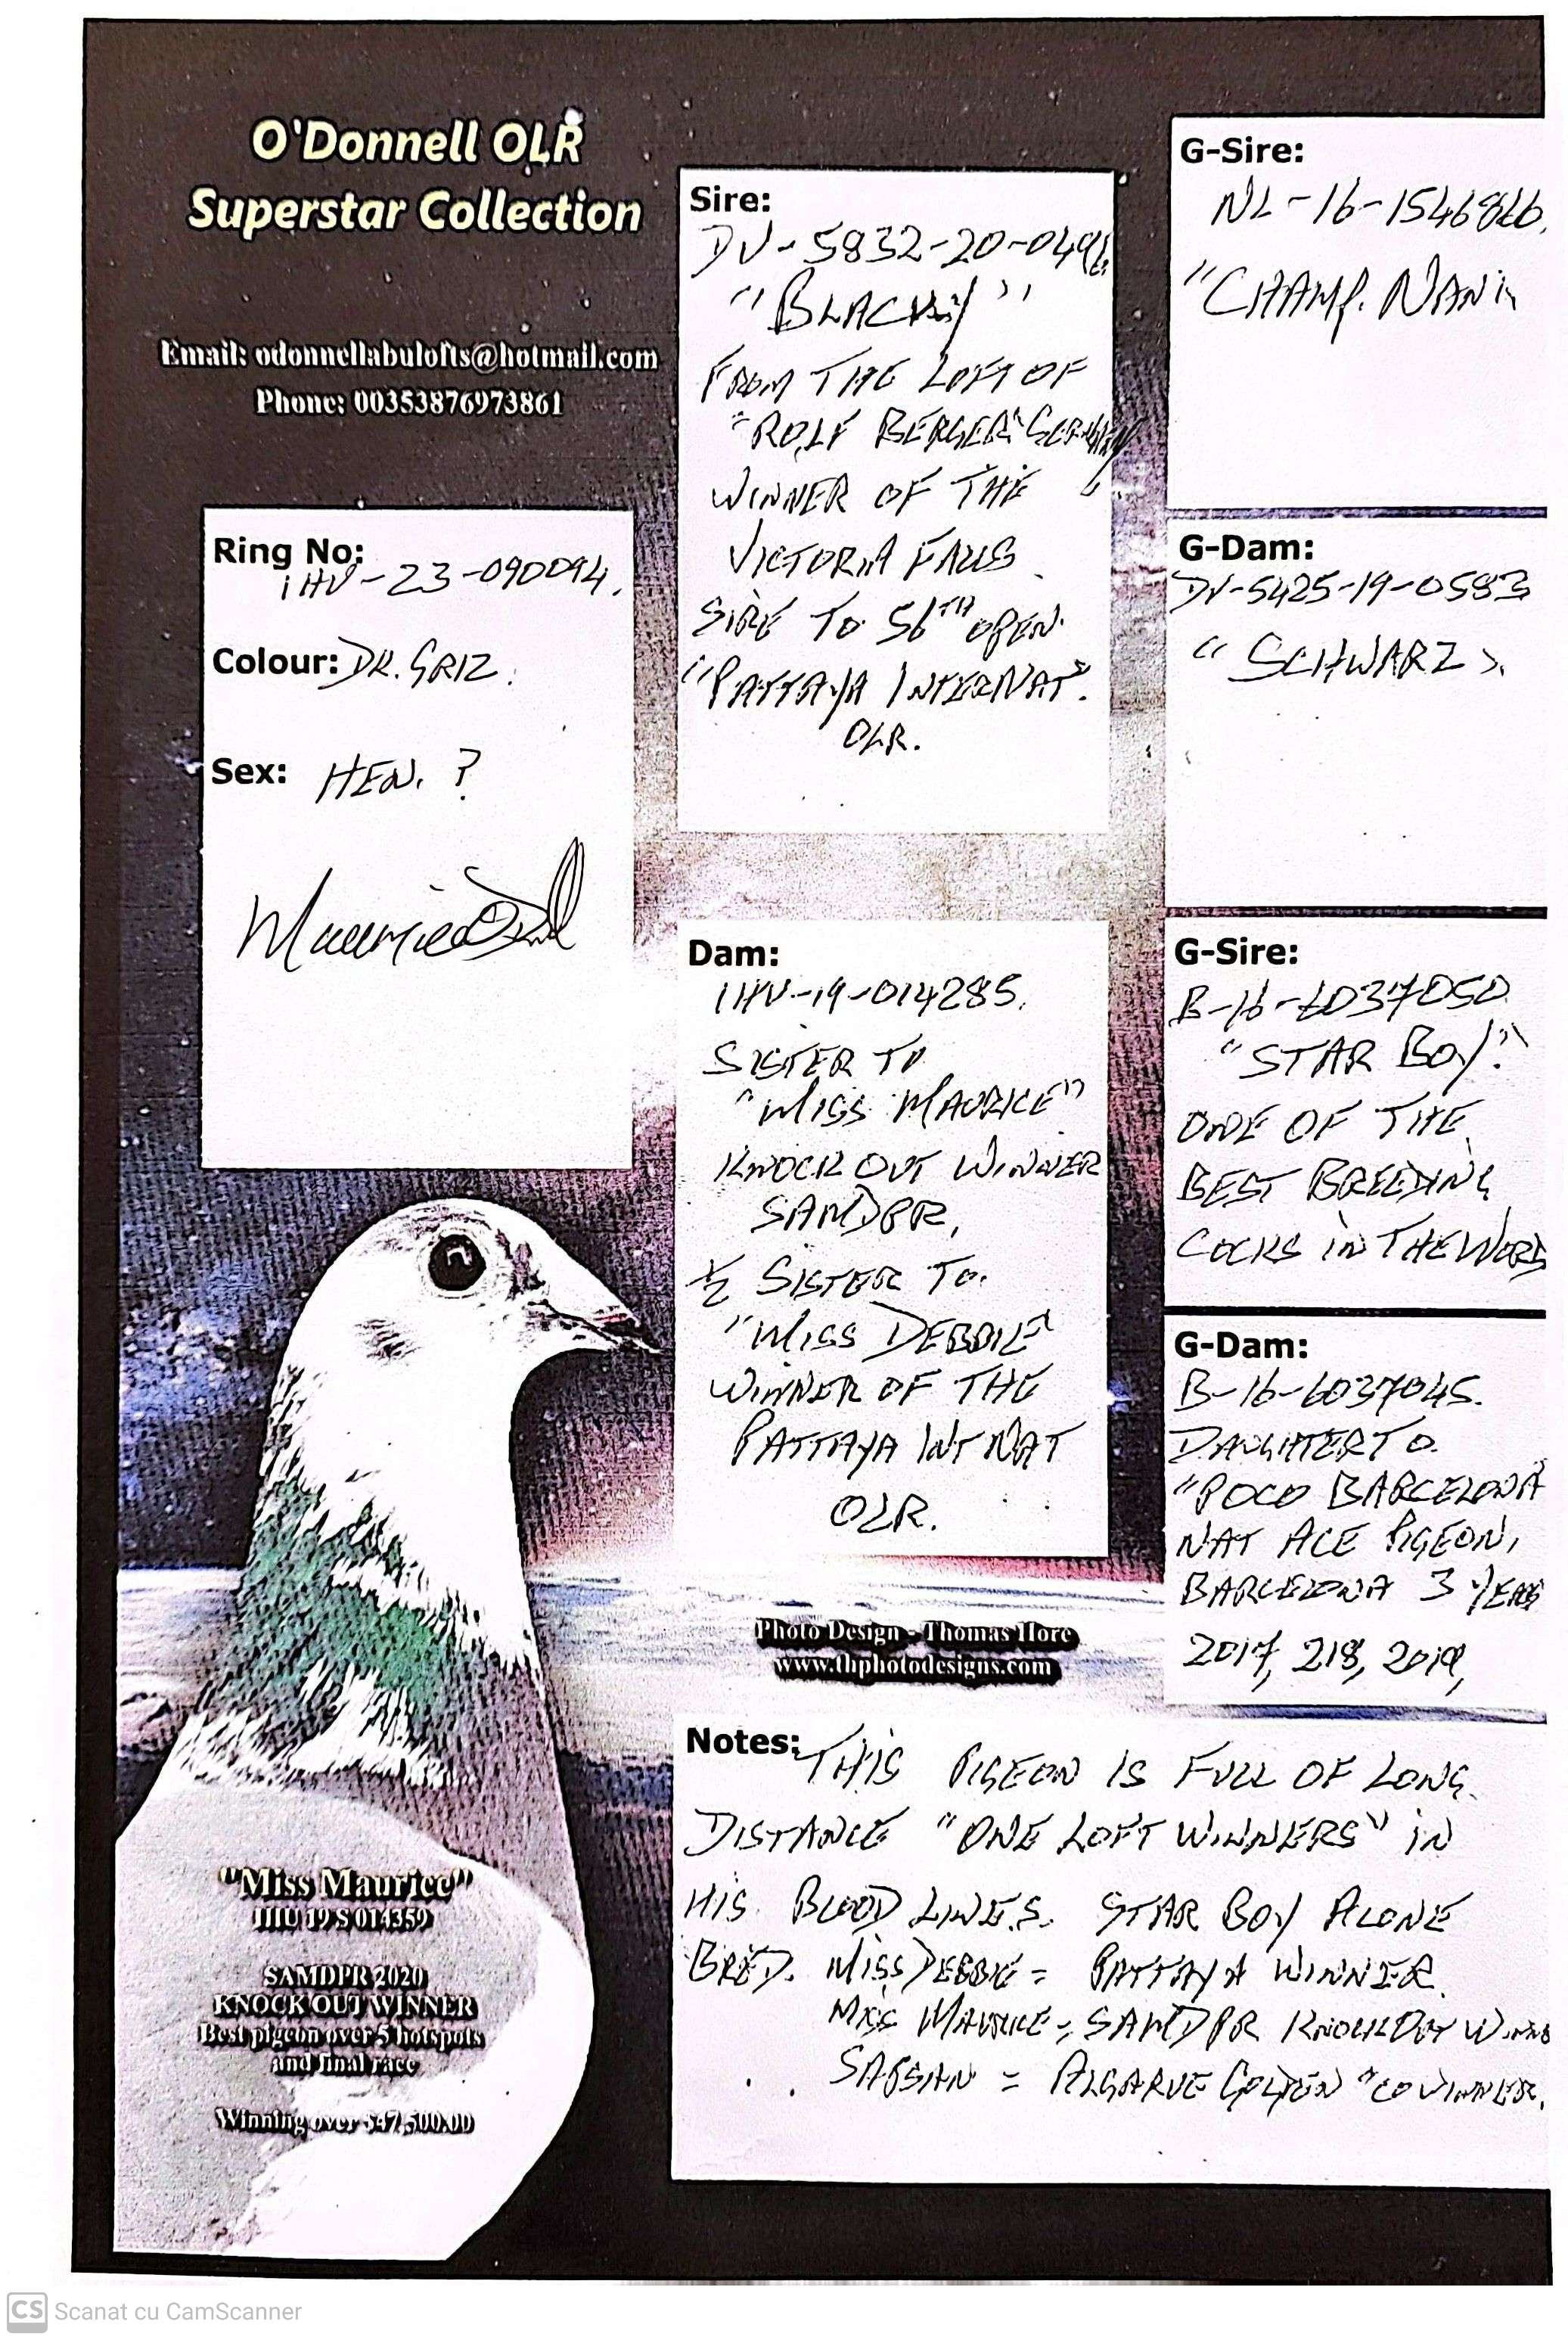 O'Donnell OLR
Superstar Collection
Email: odonnellabulofts@hotmail.com
Phone: 00353876973861
Ring No:
IHU-23-090094.
Colour: DK. GRIZ.
Sex: HEN. ?
Sire:
DV-5832-20-049
"BLACKY"
FROM THE LOFT OF
"ROLF BERGER"
WINNER OF THE
VICTORIA FALLS
SIRE TO 56TH OPEN.
"PATTAYA INTERNAT."
OLR.
Dam:
IHU-19-014285.
SISTER TO
"MISS MAURICE"
KNOCK OUT WINNER
SAMDPR,
1/2 SISTER TO.
"MISS DEBBIE"
WINNER OF THE
PATTAYA INT NAT
OLR.
G-Sire:
NL-16-1546866.
"CHAMP.
G-Dam:
DV-5425-19-0583
"SCHWARZ
G-Sire:
B-16-6037050
"STAR BOY".
ONE OF THE
BEST BREEDING
COCKS IN THE WORD
G-Dam:
B-16-6037045.
DAUGHTER TO.
"POCO BARCELONA
NAT ACE PIGEON,
BARCELONA 3 YEARS
2017, 218, 2019,
Photo Design - Thomas Hore
www.thphotodesigns.com
Notes: THIS PIGEON IS FULL OF LONG
DISTANCE "ONE LOFT WINNERS" IN
HIS BLOOD LINES. STAR BOY ALONE
BRED. MISS DEBBIE = PATTAYA WINNER.
MISS MAURICE = SAMDPR KNOCKOUT
= ALGARVE GOLDEN "CO WINNER.
"Miss Maurice"
IHU 19 S 014359
SAMDPR 2020
KNOCK OUT WINNER
Best pigeon over 5 hotspots
and final race
Winning over $47,500.00
CS Scanat cu CamScanner